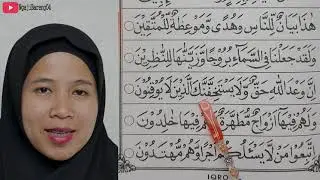 NgajiBareng04
هٰذَا بَيَانٌ لِّلنَّاسِ وَهُدًى وَّمَوْعِظَةٌ لِّلْمُتَّقِيْنَ
وَلَقَدْ جَعَلْنَا فِى السَّمَآءِ بُرُوْجًا وَّزَيَّنّٰهَا لِلنّٰظِرِيْنَ
اِنَّ وَعْدَ اللّٰهِ حَقٌّ وَّلَا يَسْتَخِفَّنَّكَ الَّذِيْنَ لَا يُوْقِنُوْنَ
وَلَهُمْ فِيْهَآ اَزْوَاجٌ مُّطَهَّرَةٌ وَّهُمْ فِيْهَا خٰلِدُوْنَ
اتَّبِعُوْا مَنْ لَّا يَسْـَٔلُكُمْ اَجْرًا وَّهُمْ مُّهْتَدُوْنَ